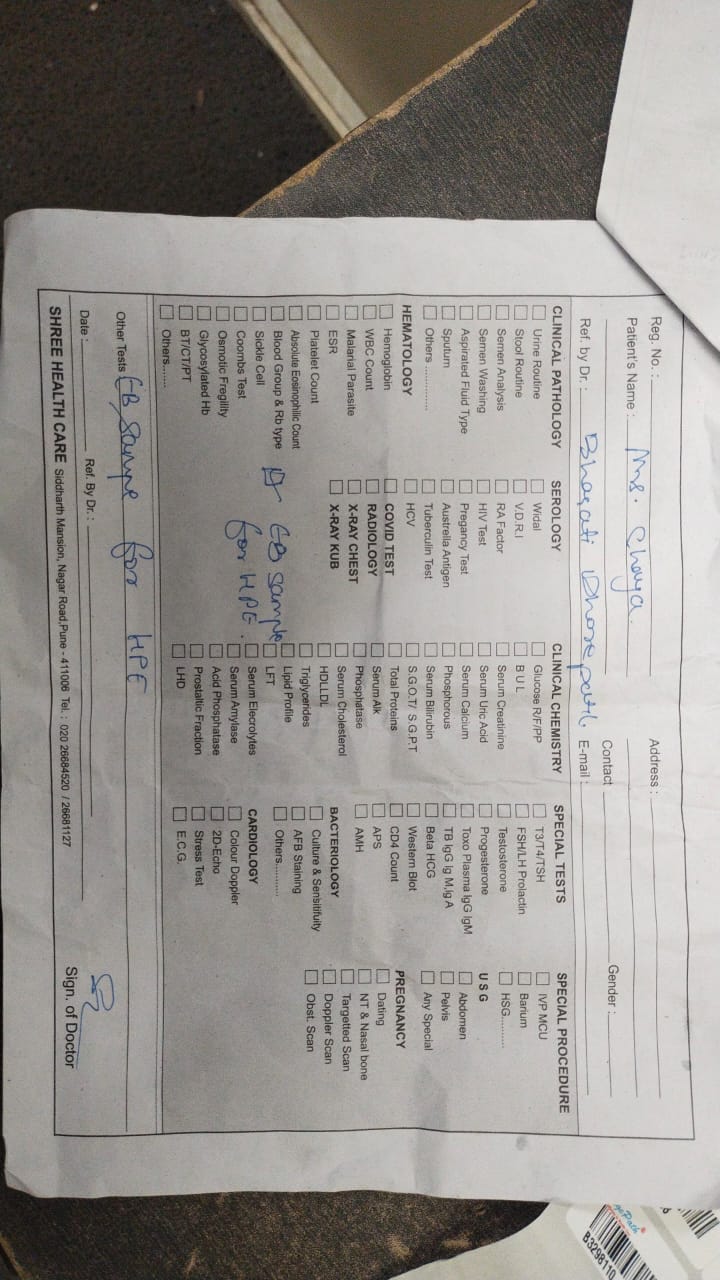 Reg. No. :
Patient's Name : Ms. Chaya
Address :
Contact
Gender :
Ref. by Dr. : Bhagati Dhorepatil
E-mail :
CLINICAL PATHOLOGY
Urine Routine
Stool Routine
Semen Analysis
Semen Washing
Aspirated Fluid Type
Sputum
Others.............
HEMATOLOGY
Hemoglobin
WBC Count
Malarial Parasite
ESR
Platelet Count
Absolute Eosinophilic Count
Blood Group & Rb type
Sickle Cell
Coombs Test
Osmotic Fregility
Glycosylated Hb
BT/CT/PT
Others.......
SEROLOGY
Widal
V.D.R.I
RA Factor
HIV Test
Pregancy Test
Austrella Antigen
Tuberculin Test
HCV
COVID TEST
RADIOLOGY
X-RAY CHEST
X-RAY KUB
EB sample
for HPE.
CLINICAL CHEMISTRY
Glucose R/F/PP
B U L
Serum Creatinine
Serum Uric Acid
Serum Calcium
Phosphorous
Serum Bilirubin
S.G.O.T/ S.G.P.T
Total Proteins
Serum Alk
Phosphatase
Serum Cholesterol
HDLLDL
Triglycerides
Lipid Profile
LFT
Serum Elecrolytes
Serum Amylase
Acid Phosphatase
Prostaltic Fraction
LHD
SPECIAL TESTS
T3/T4/TSH
FSH/LH Prolactin
Testosterone
Progesterone
Toxo Plasma IgG IgM
TB IgG Ig M,Ig A
Beta HCG
Western Blot
CD4 Count
APS
AMH
BACTERIOLOGY
Culture & Sensitifuity
AFB Staining
Others..........
CARDIOLOGY
Colour Doppler
2D-Echo
Stress Test
E.C.G.
SPECIAL PROCEDURE
IVP MCU
Barium
HSG..........
U S G
Abdomen
Pelvis
Any Special
PREGNANCY
Dating
NT & Nasal bone
Targetted Scan
Doppler Scan
Obst. Scan
Other Tests EB sampe for HPE
Date :
Ref. By Dr. :
Sign. of Doctor
SHREE HEALTH CARE Siddharth Mansion, Nagar Road,Pune - 411006 Tel. : 020 26684520 / 26681127
B3298110